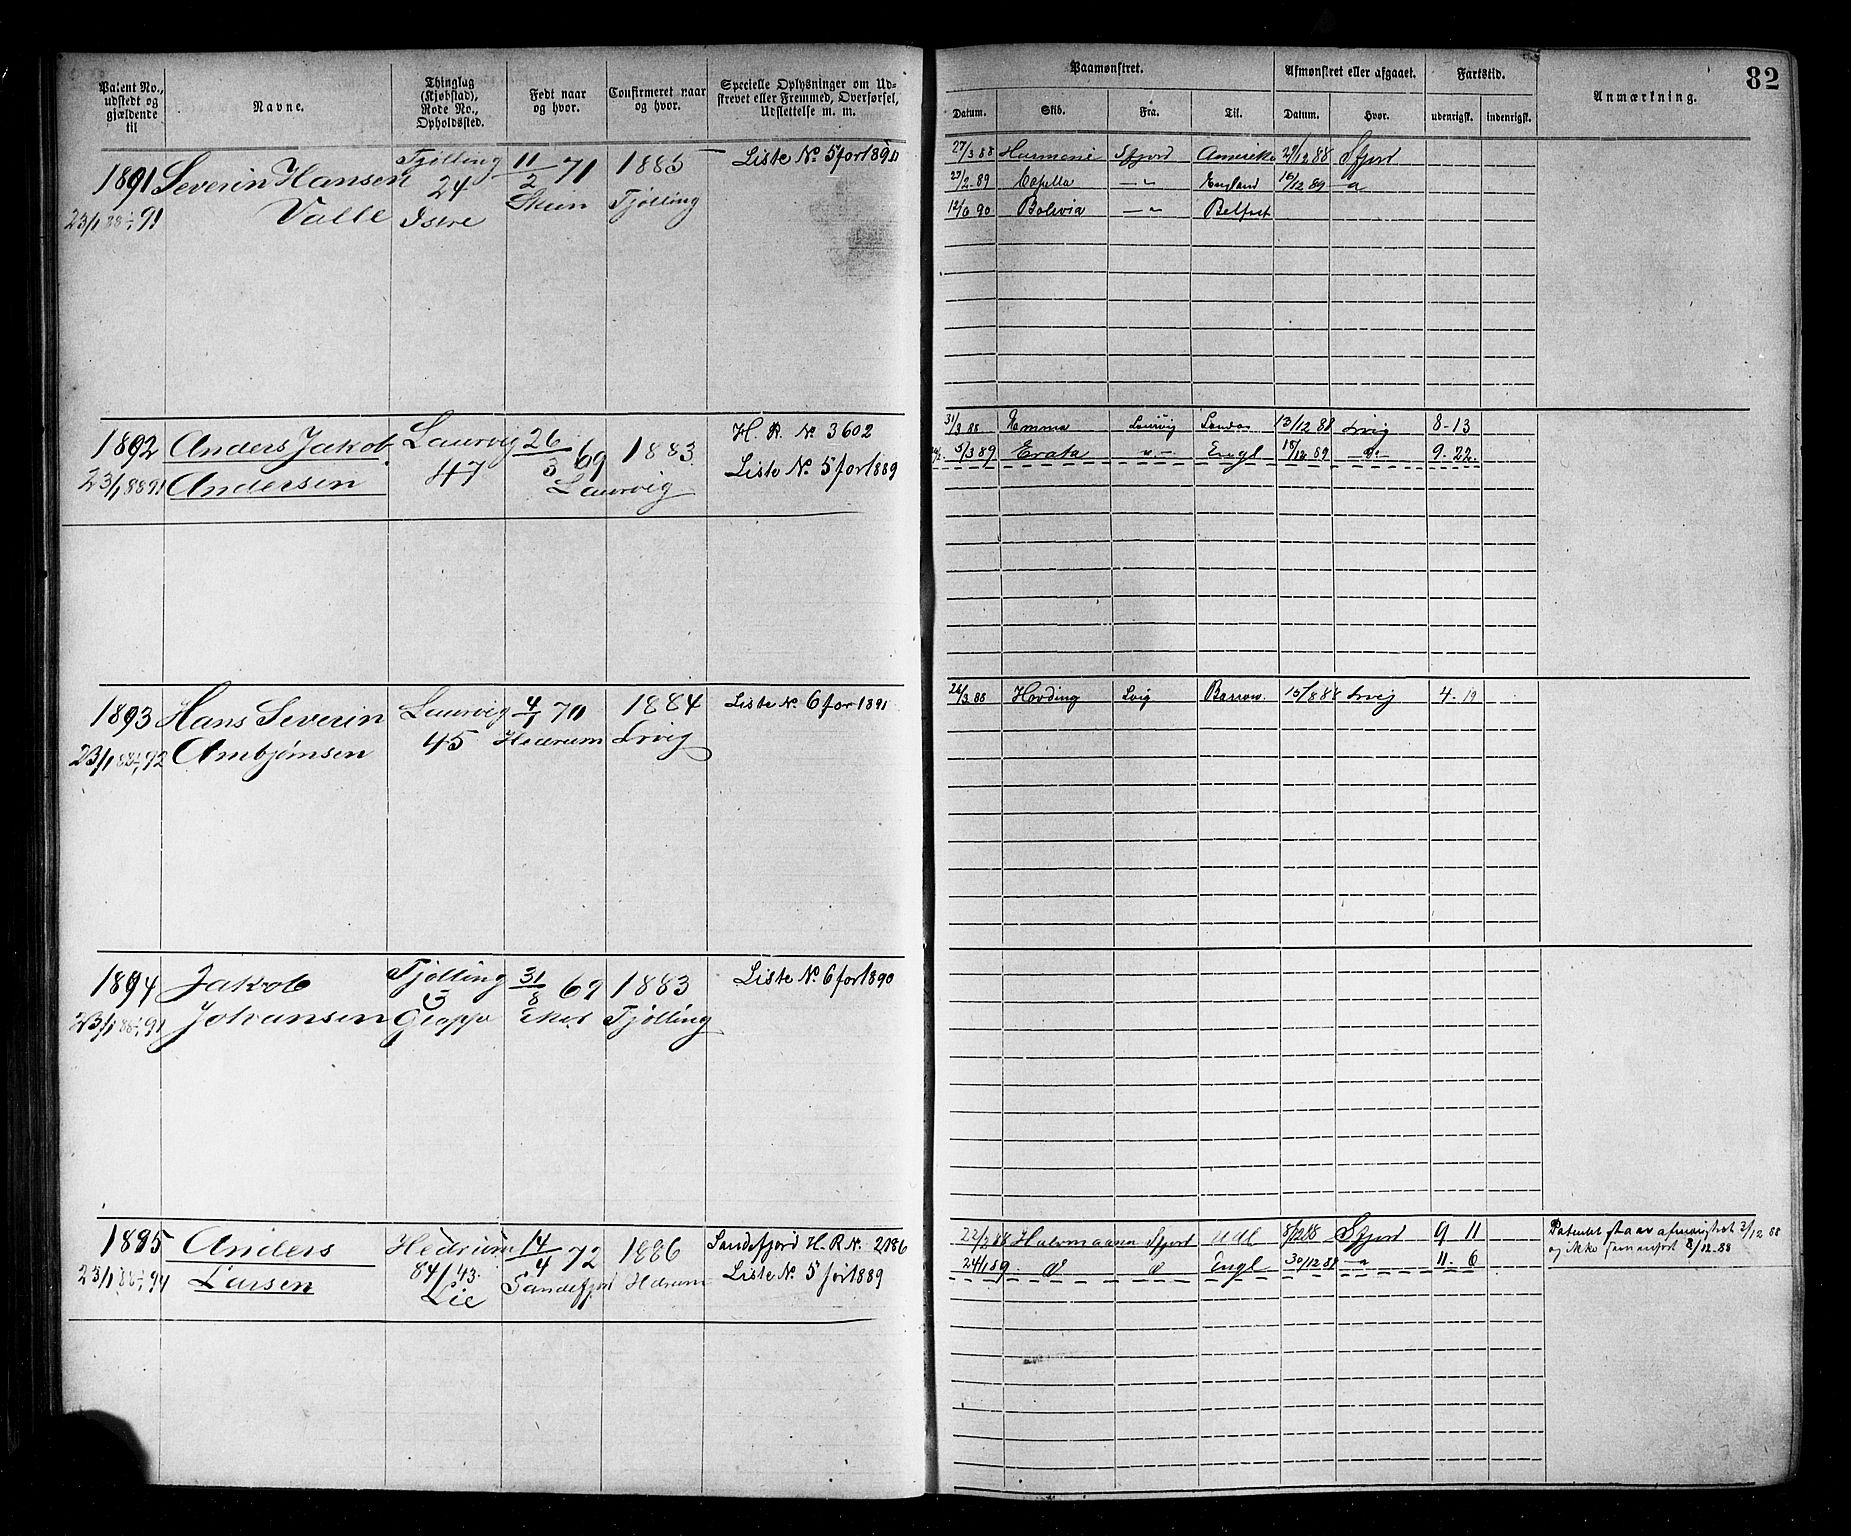 82
Patent No., udstedt og gjældende til
Navne.
Thinglag (Kjøbstad), Rode No., Opholdssted.
Født naar og hvor.
Confirmeret naar og hvor.
Specielle Oplysninger om Udstrevet eller Fremmed, Overførsel, Udslettelse m. m.
Paamønstret.
Afmønstret eller afgaaet.
Fartstid.
Anmærkning.
Datum. Skib. Fra. Til. Datum. Hvor. udenrigsk. indenrigsk.
1891 Severin Hansen Tjølling 11/2 71 1885 Liste No. 5 for 1890
23/1 88 91 Valle 24 Istre Tjølling
27/3 88 Sfjord Amerika 29/12 88 Sfjord
27/2 89 Capella —"— England 16/12 89 —"—
12/6 90 Bolivia —"— Belfast
1892 Anders Jakob Laurvig 26/3 69 1883 H. R. No 3602
23/1 88 91 Andersen 47 Laurvig Liste No. 5 for 1889
31/3 88 Emma Laurvig London 13/12 88 Lrvig 8-13
5/3 89 Erata —"— Engl 18/12 89 —"— 9-22
1893 Hans Severin Laurvig 4/1 70 1884 Liste No. 6 for 1891
23/1 88 92 Ambjørnsen 45 Hedrum Lrvig
26/3 88 Hövding Lvig Barrow 15/8 88 Lrvig 4-19
1894 Jakob Tjølling 31/8 69 1883 Liste No. 6 for 1890
23/1 88 91 Johansen Tjølling
1895 Anders Hedrum 14/4 72 1886 Sandefjord H. R. No. 2186
23/1 88 94 Larsen 84/43 Lie Sandefjord Hedrum Liste No. 5 for 1889
22/2 88 Sfjord Sfjord 9 11 Patentet staar afmønstret 2/12 88
24/1 89 Engl 30/12 88 11-6 og ikke 8/12 88